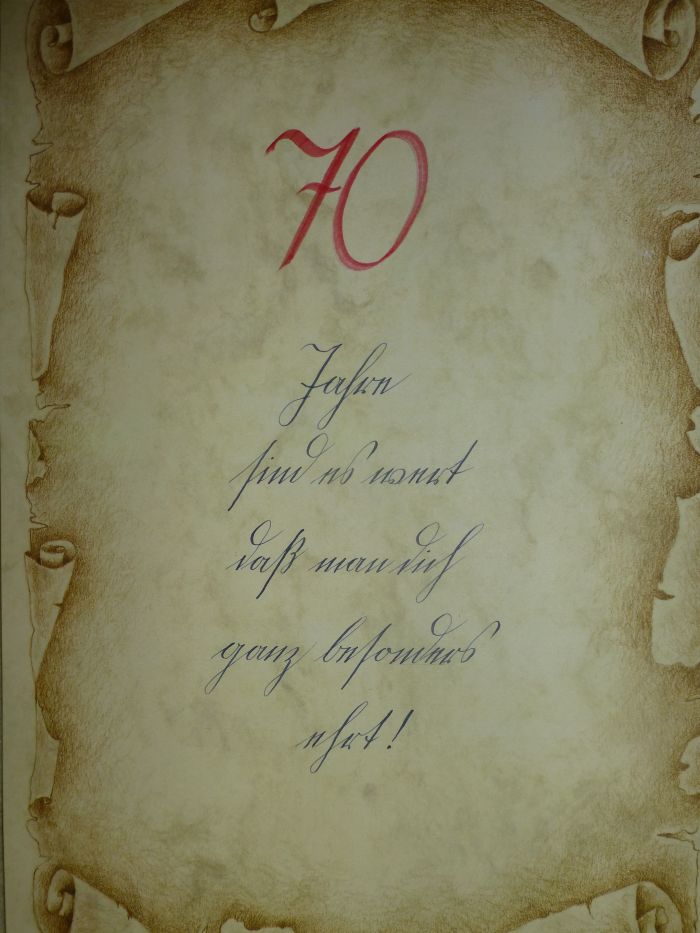 70
Jahre
sind es wert
daß man dich
ganz besonders
ehrt!